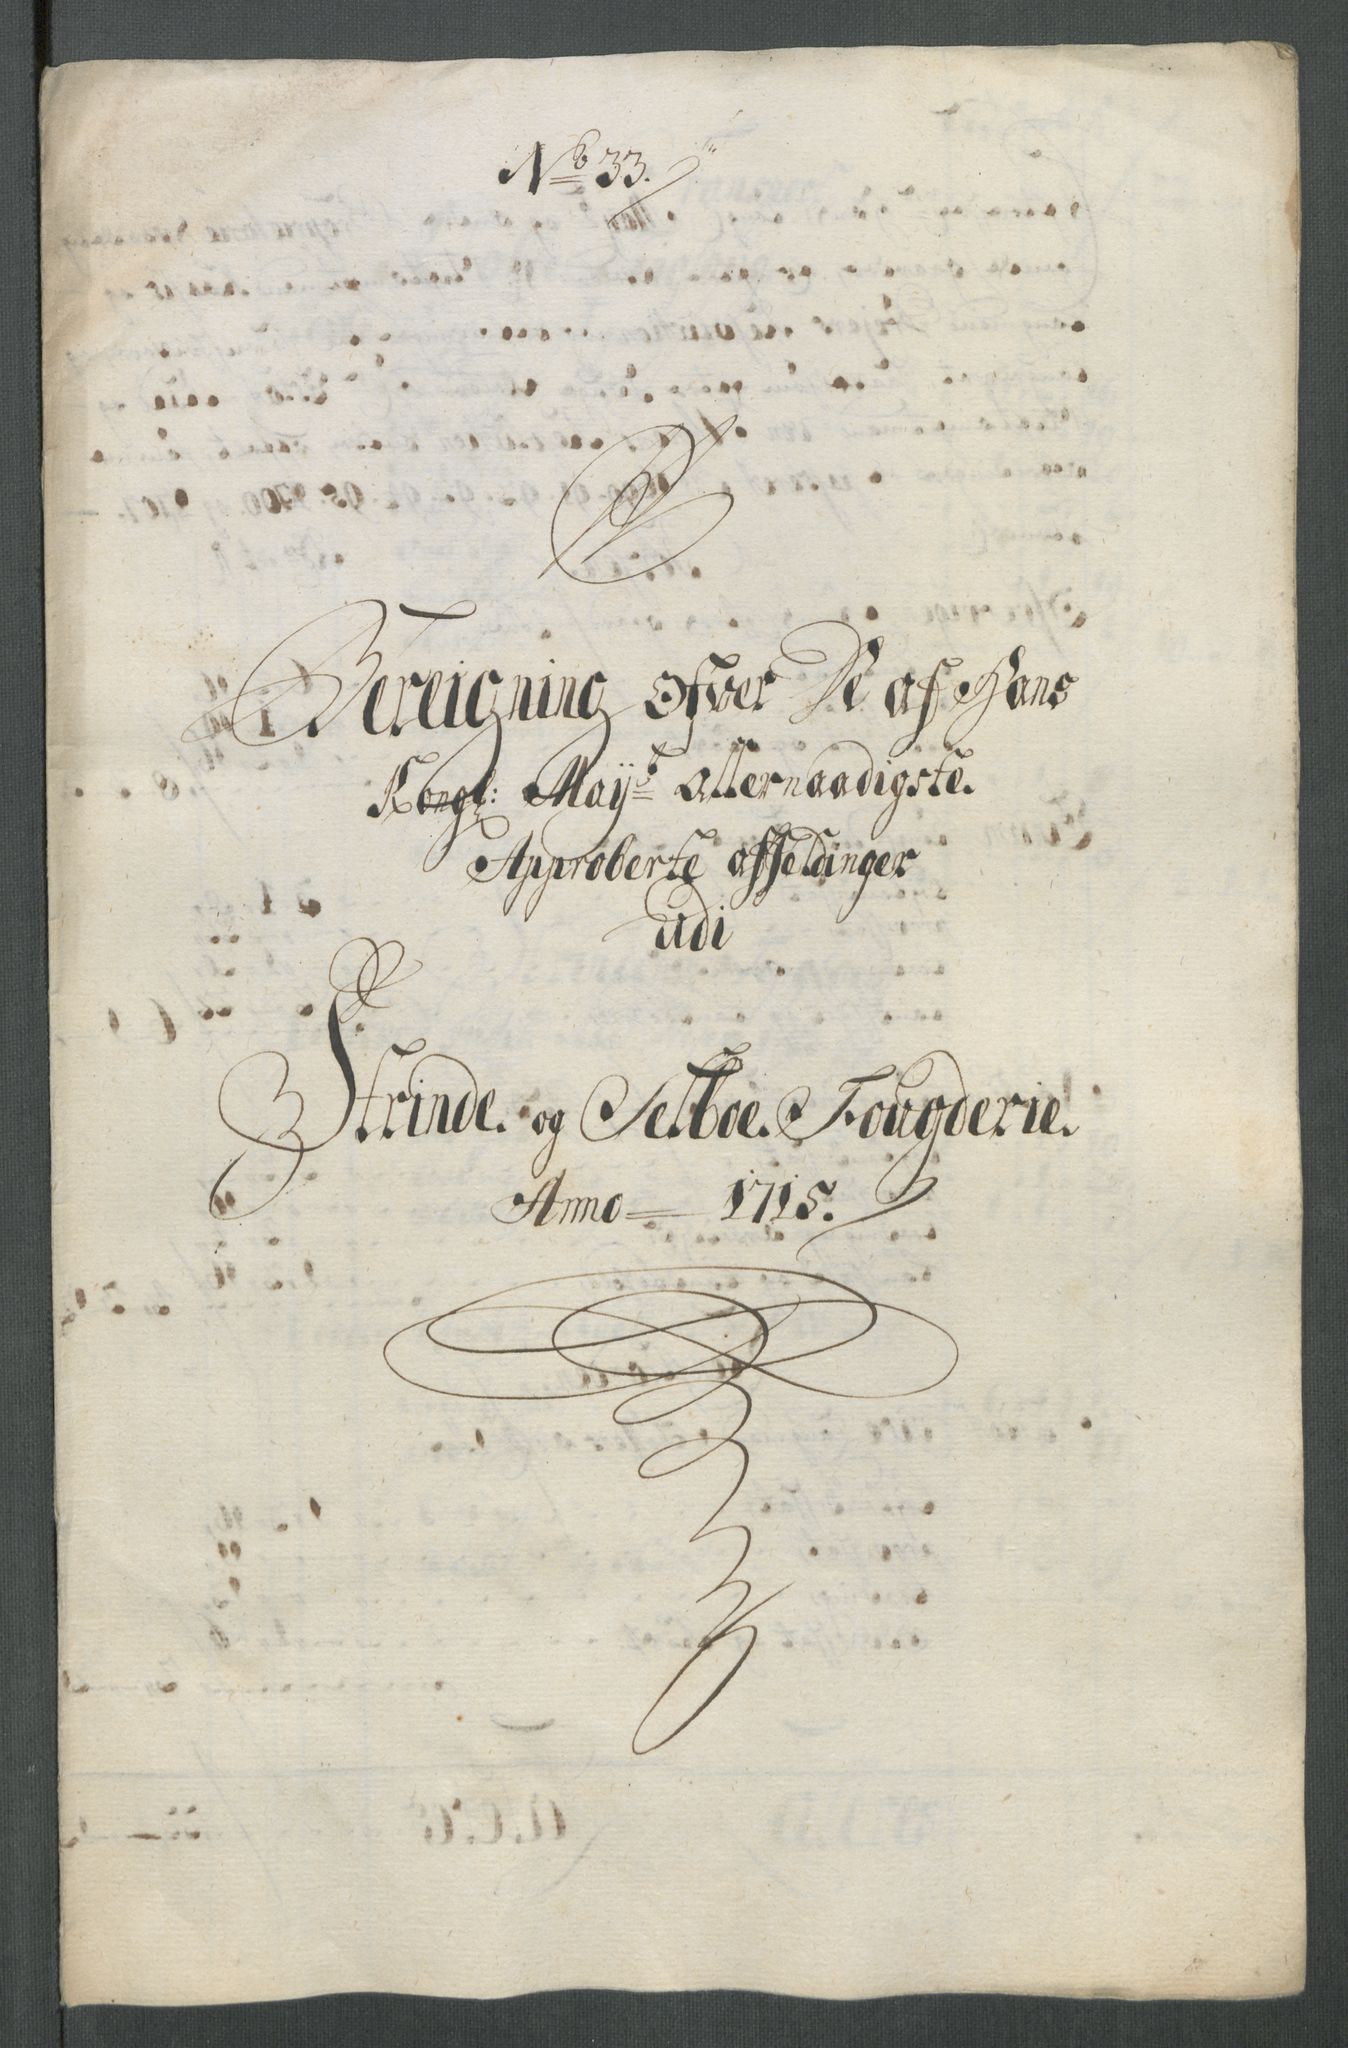 No 33.
Bereigning ofver De af Hans
Kongl: Mayts Allernaadigste.
Approberte affeldinger
udi
Strinde. og Selboe. Fougderie.
Anno 1715.